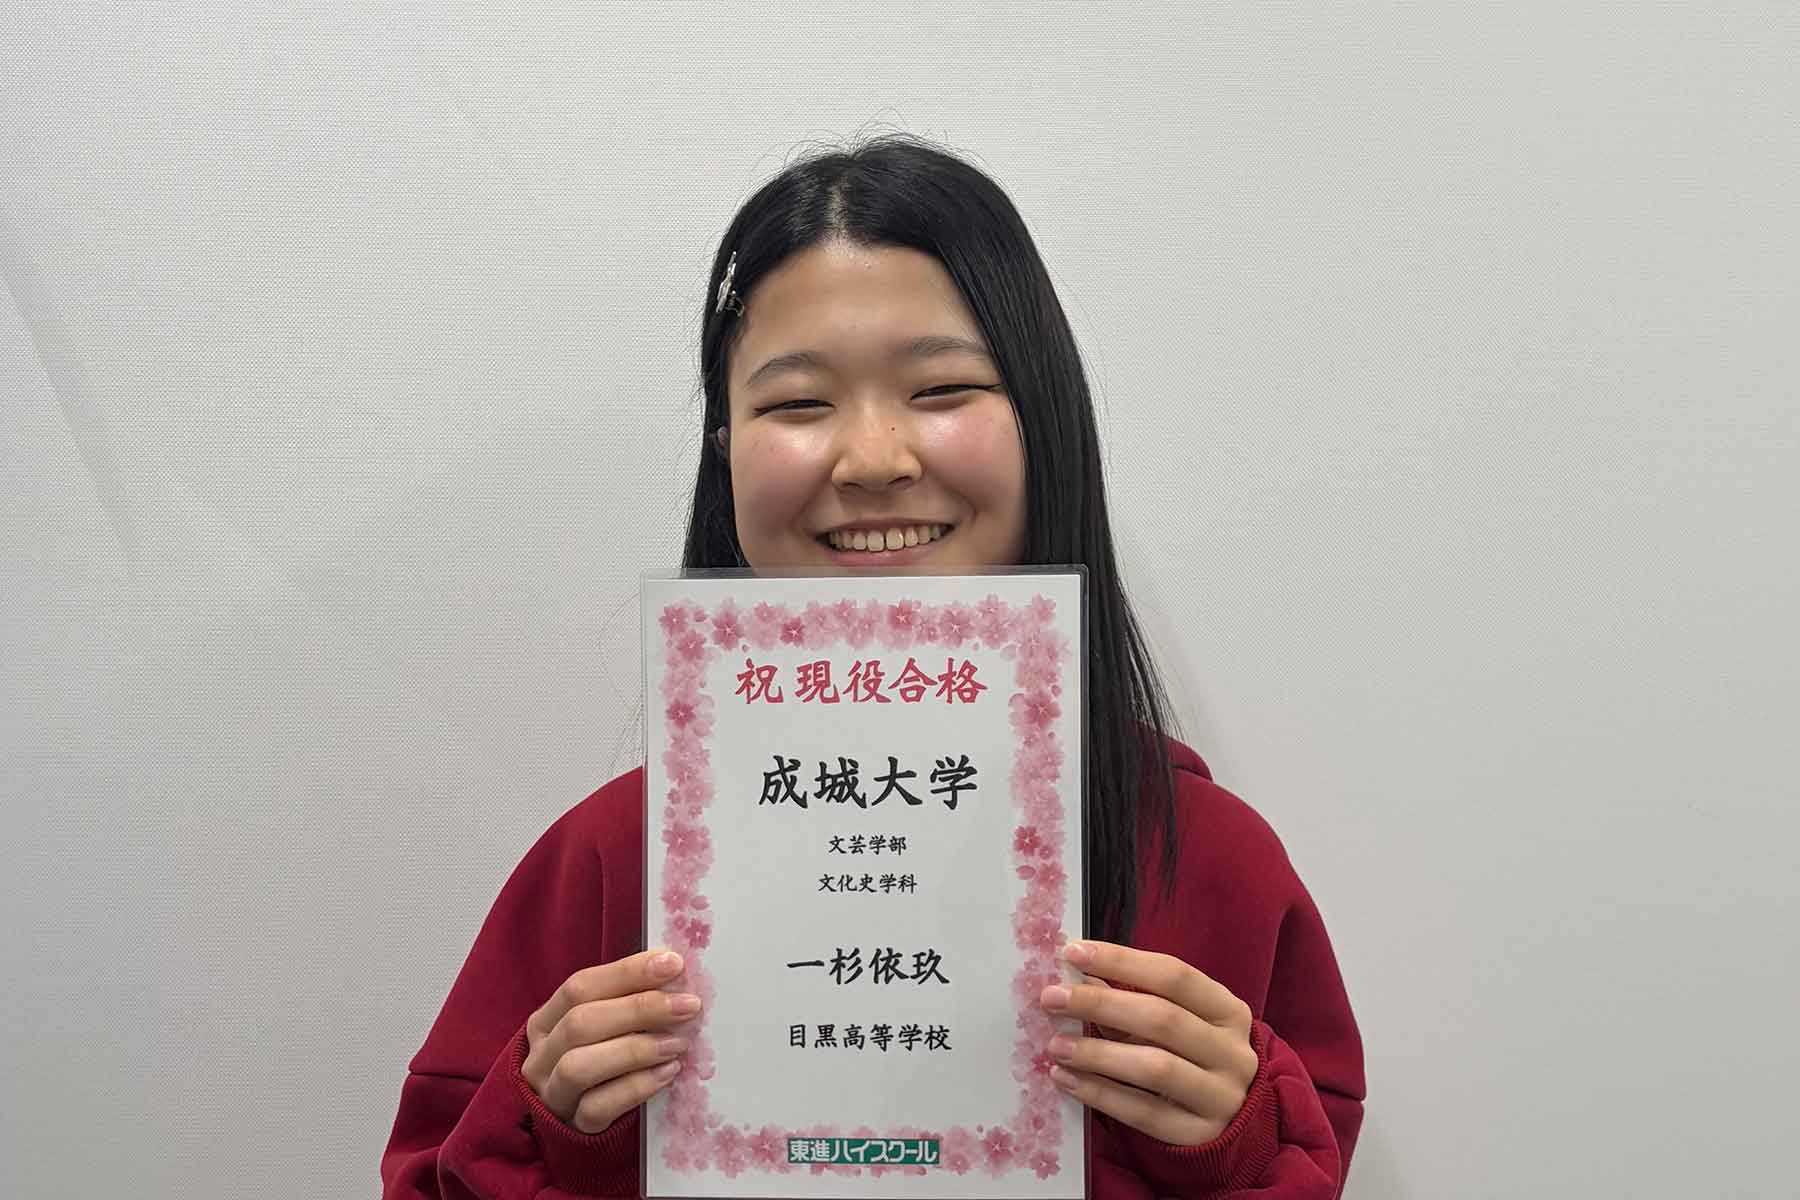 祝 現役合格
成城大学
文芸学部
文化史学科
一杉依玖
目黒高等学校
東進ハイスクール